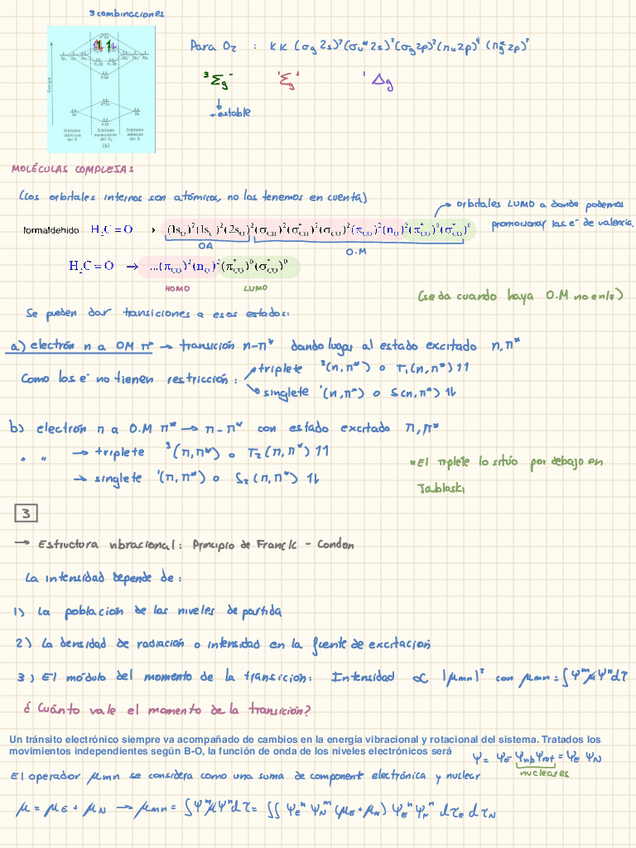 3 combinaciones
Para O₂ : KK (σg 2s)² (σu* 2s)² (σg 2p)² (πu 2p)⁴ (πg* 2p)²
³Σg⁻ ¹Σg⁺ ¹Δg
+ estable
Energía
Orbitales atómicos del O
Orbitales moleculares del O₂
Orbitales atómicos del O
(b)
MOLÉCULAS COMPLEJAS
(Los orbitales internos son atómicos, no las tenemos en cuenta)
orbitales LUMO a donde podemos
promocionar los e⁻ de valencia.
formaldehido H₂C=O → (1s_O)²(1s_C)²(2s_O)²(σ_CH)²(σ'_CH)²(σ_CO)²(π_CO)²(n_O)²(π*_CO)⁰(σ*_CO)⁰
OA O.M
H₂C=O → ...(π_CO)²(n_O)²(π*_CO)⁰(σ*_CO)⁰
HOMO LUMO
(se da cuando haya O.M no enlz)
Se pueden dar transiciones a esos estados:
a) electrón n a OM π* → transición n-π* dando lugar al estado excitado n, π*
Como los e⁻ no tienen restricción: triplete ³(n,π*) o T₁(n,π*) 11
singlete ¹(n,π*) o S(n,π*) 1↓
b) electrón π a O.M π* → π-π* con estado excitado π, π*
" " → triplete ³(π,π*) o T₂(π,π*) 11
→ singlete ¹(π,π*) o S₂(π,π*) 1↓
*El triplete lo sitúo por debajo en
Jabloski
3
→ Estructura vibracional: Principio de Franck - Condon
La intensidad depende de:
1) La población de los niveles de partida
2) La densidad de radiación o intensidad en la fuente de excitación
3) El módulo del momento de la transición: Intensidad ∝ |μmn|² con μmn = ∫Ψᵐ μ Ψⁿ dτ
¿Cuánto vale el momento de la transición?
Un tránsito electrónico siempre va acompañado de cambios en la energía vibracional y rotacional del sistema. Tratados los
movimientos independientes según B-O, la función de onda de los niveles electrónicos será Ψ = Ψe Ψvib Ψrot = Ψe ΨN
nucleares
El operador μmn se considera como una suma de component electrónica y nuclear
μ = μE + μN → μmn = ∫Ψᵐ μ Ψⁿ dτ = ∫∫ Ψeᵐ ΨNᵐ (μe + μN) Ψeⁿ ΨNⁿ dτe dτN